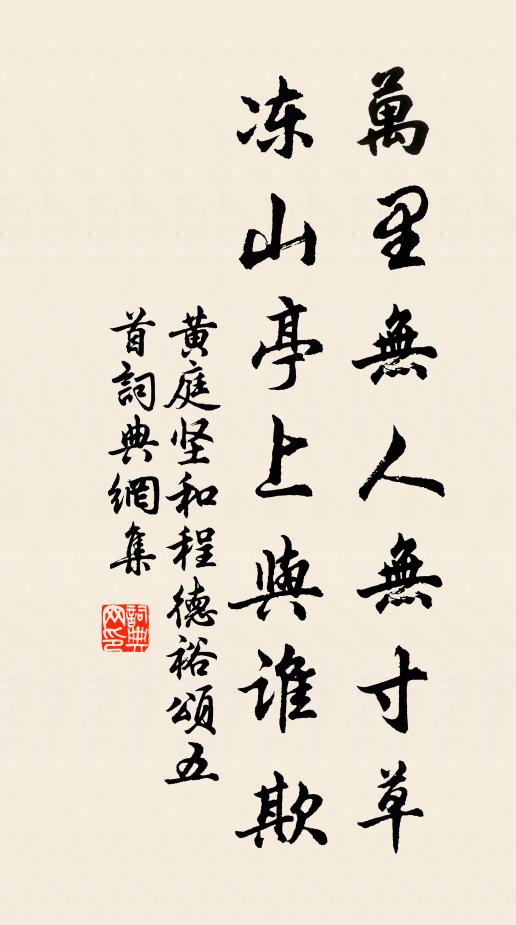 萬里無人無寸草
冻山亭上與谁欺
黄庭坚和程德裕頌五
首詞典網集
詞典网印